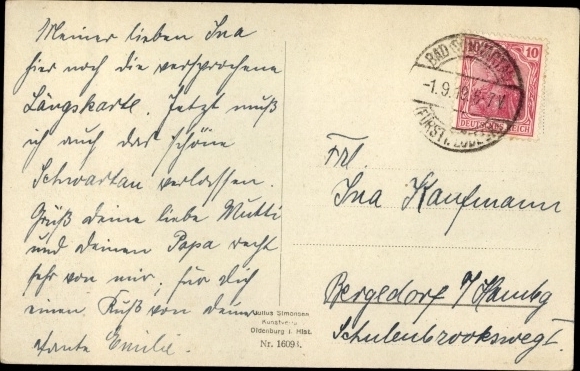 Meiner lieben Ina
hier noch die versprochene
Längskarte. Jetzt muß
ich auch das schöne
Schwartau verlassen.
Grüß deine liebe Mutti
und deinen Papa recht
sehr von mir, für dich
einen Kuß von deiner
Tante Emilie.
Julius Simonsen
Kunstverlag
Oldenburg i. Hlst.
Nr. 16091.
BAD SCHWARTAU
-1.9.19. 6-7 V
(FÜRST. LÜBECK)
10
DEUTSCHES REICH
Frl.
Ina Kaufmann
Bergedorf b/Hambg
Schulenbrooksweg 1.